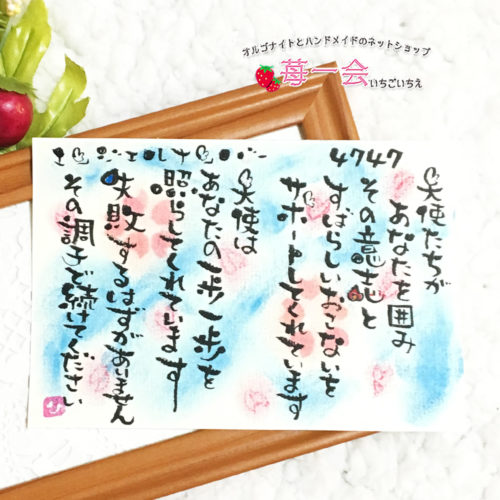 オルゴナイトとハンドメイドのネットショップ
苺一会
いちごいちえ
エンジェルナンバー
4747
天使たちが
あなたを囲み
その意志と
すばらしいおこないを
サポートしてくれています
天使は
あなたの一歩一歩を
照らしてくれています
失敗するはずがありません
その調子で続けてください